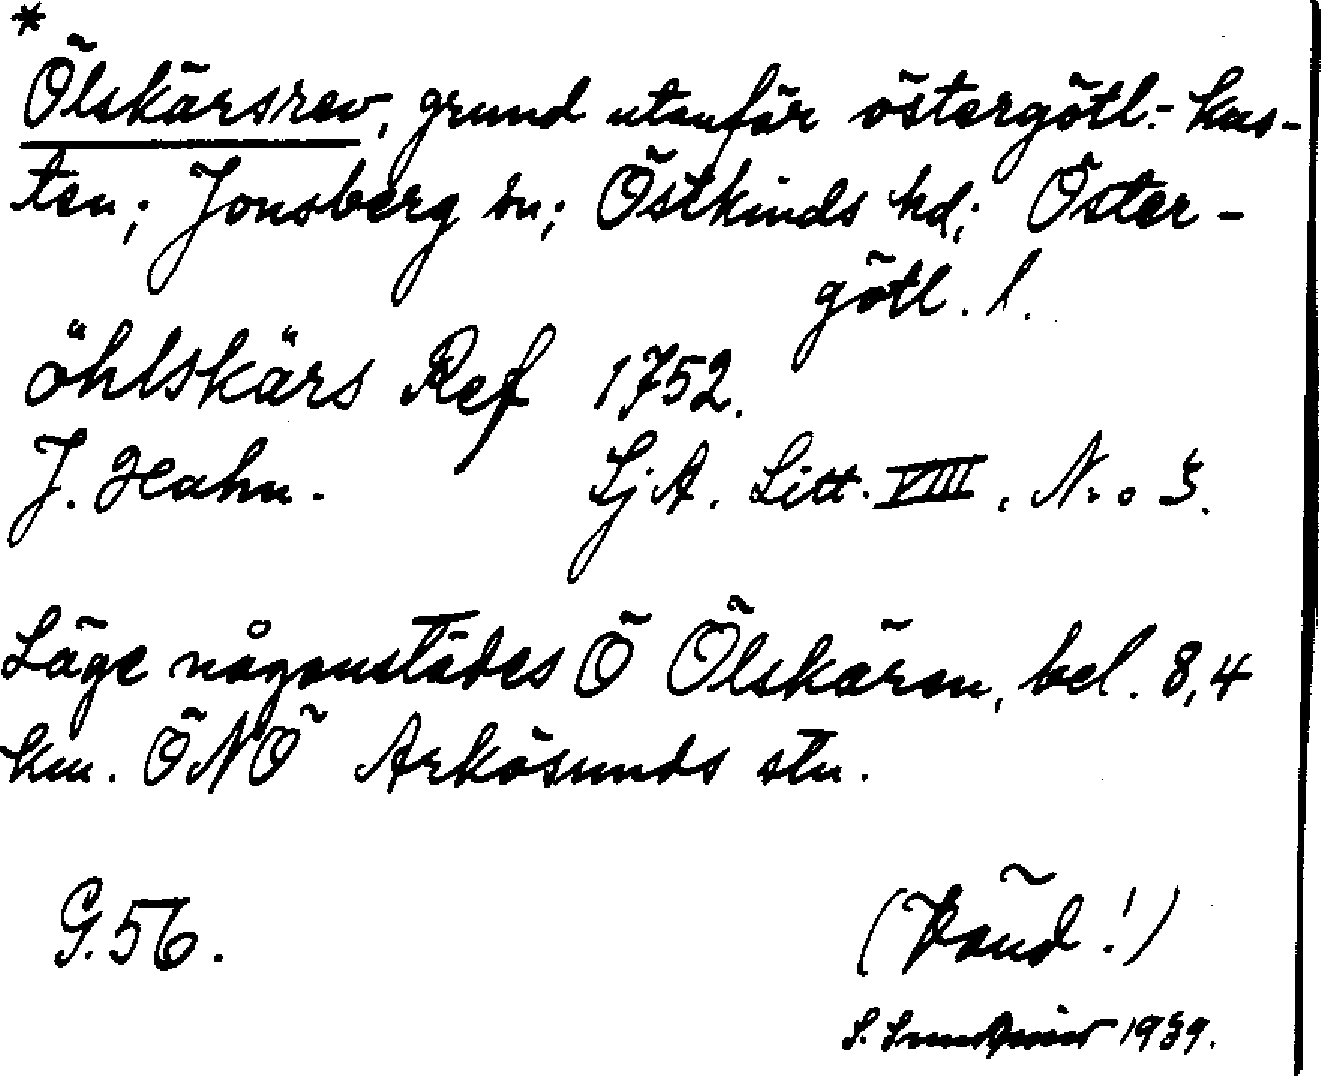 *
Ölskärsrev, grund utanför östergötl.- kus-
ten; Jonsberg sn; Östkinds hd; Öster-
götl. l.
öhlskärs Ref 1752.
J. Hahn. SjA. Litt. VIII, N:o 3.
Läge någonstädes Ö Ölskären, bel. 8,4
km. ÖNÖ Arkösunds stn.
G. 56. (Vänd!)
S. 1939.